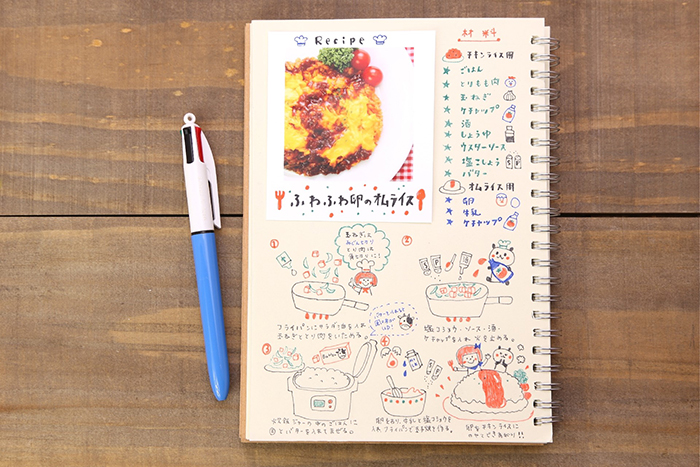 Recipe
ふわふわ卵のオムライス
材料
チキンライス用
ごはん
とりもも肉
玉ねぎ
ケチャップ
酒
しょうゆ
ウスターソース
塩こしょう
バター
オムライス用
卵
牛乳
ケチャップ
①
玉ねぎは
みじんぎり
とり肉は
フライパンにサラダ油を入れ
玉ねぎととり肉をいためる。
②
塩コショウ・ソース・酒・
ケチャップを入れ火を止める。
③
炊飯ジャーの中のごはんに
②とバターを入れてまぜる。
④
卵をわり、牛乳と塩コショウを
入れフライパンで
卵をチキンライスに
のせてできあがり!!